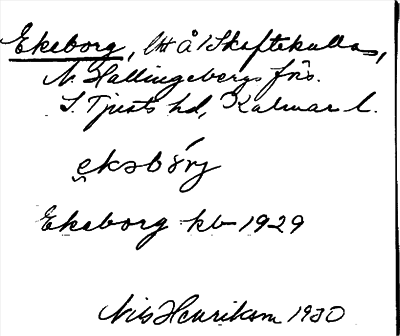 Ekeborg, lht å Skaftekulla,
N. Hallingebergs fös.
S. Tjusts hd, Kalmar l.
ekəbórj
Ekeborg kb 1929
Nils Henrikson 1930